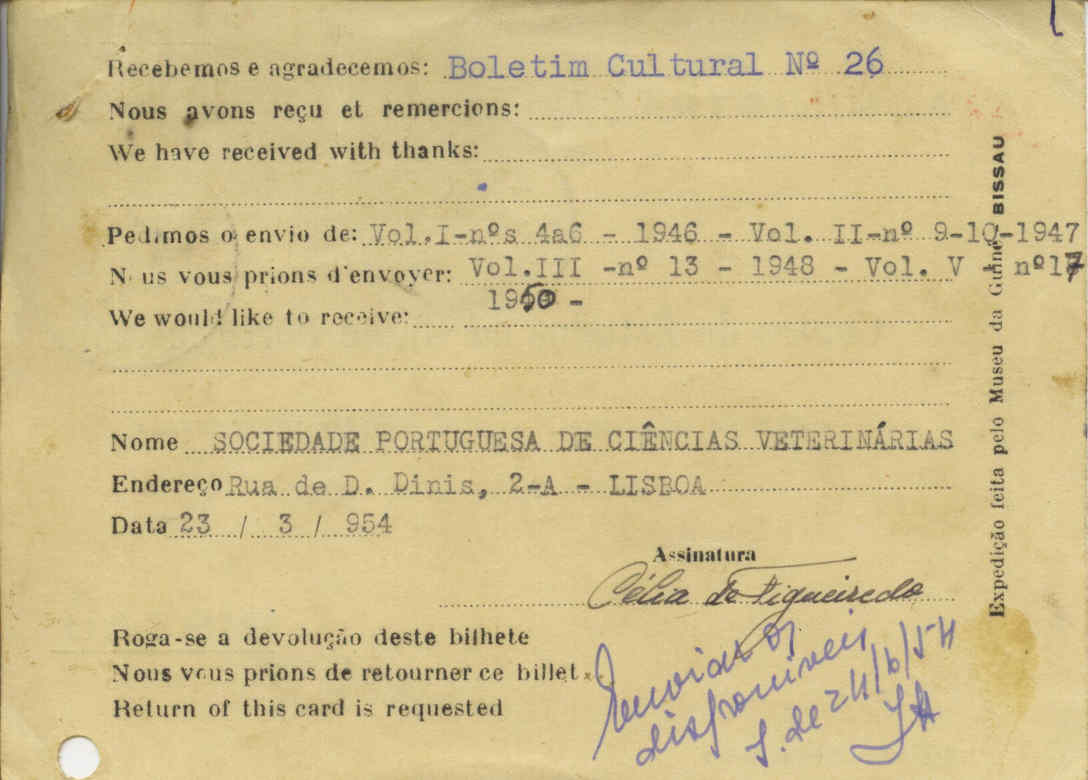 Recebemos e agradecemos: Boletim Cultural Nº 26
Nous avons reçu et remercions:
We have received with thanks:
Pedimos o envio de: Vol.I-nºs 4a6 - 1946 - Vol. II-nº 9-10-1947
Nous vous prions d'envoyer: Vol.III -nº 13 - 1948 - Vol. V - nº17
1950 -
We would like to receive:
Nome SOCIEDADE PORTUGUESA DE CIÊNCIAS VETERINÁRIAS
Endereço Rua de D. Dinis, 2-A - LISBOA
Data 23 / 3 / 954
Assinatura
Célia de Figueiredo
Roga-se a devolução deste bilhete
Nous vous prions de retourner ce billet
Return of this card is requested
Enviar os
disponiveis
24/6/54
Expedição feita pelo Museu da Guiné BISSAU